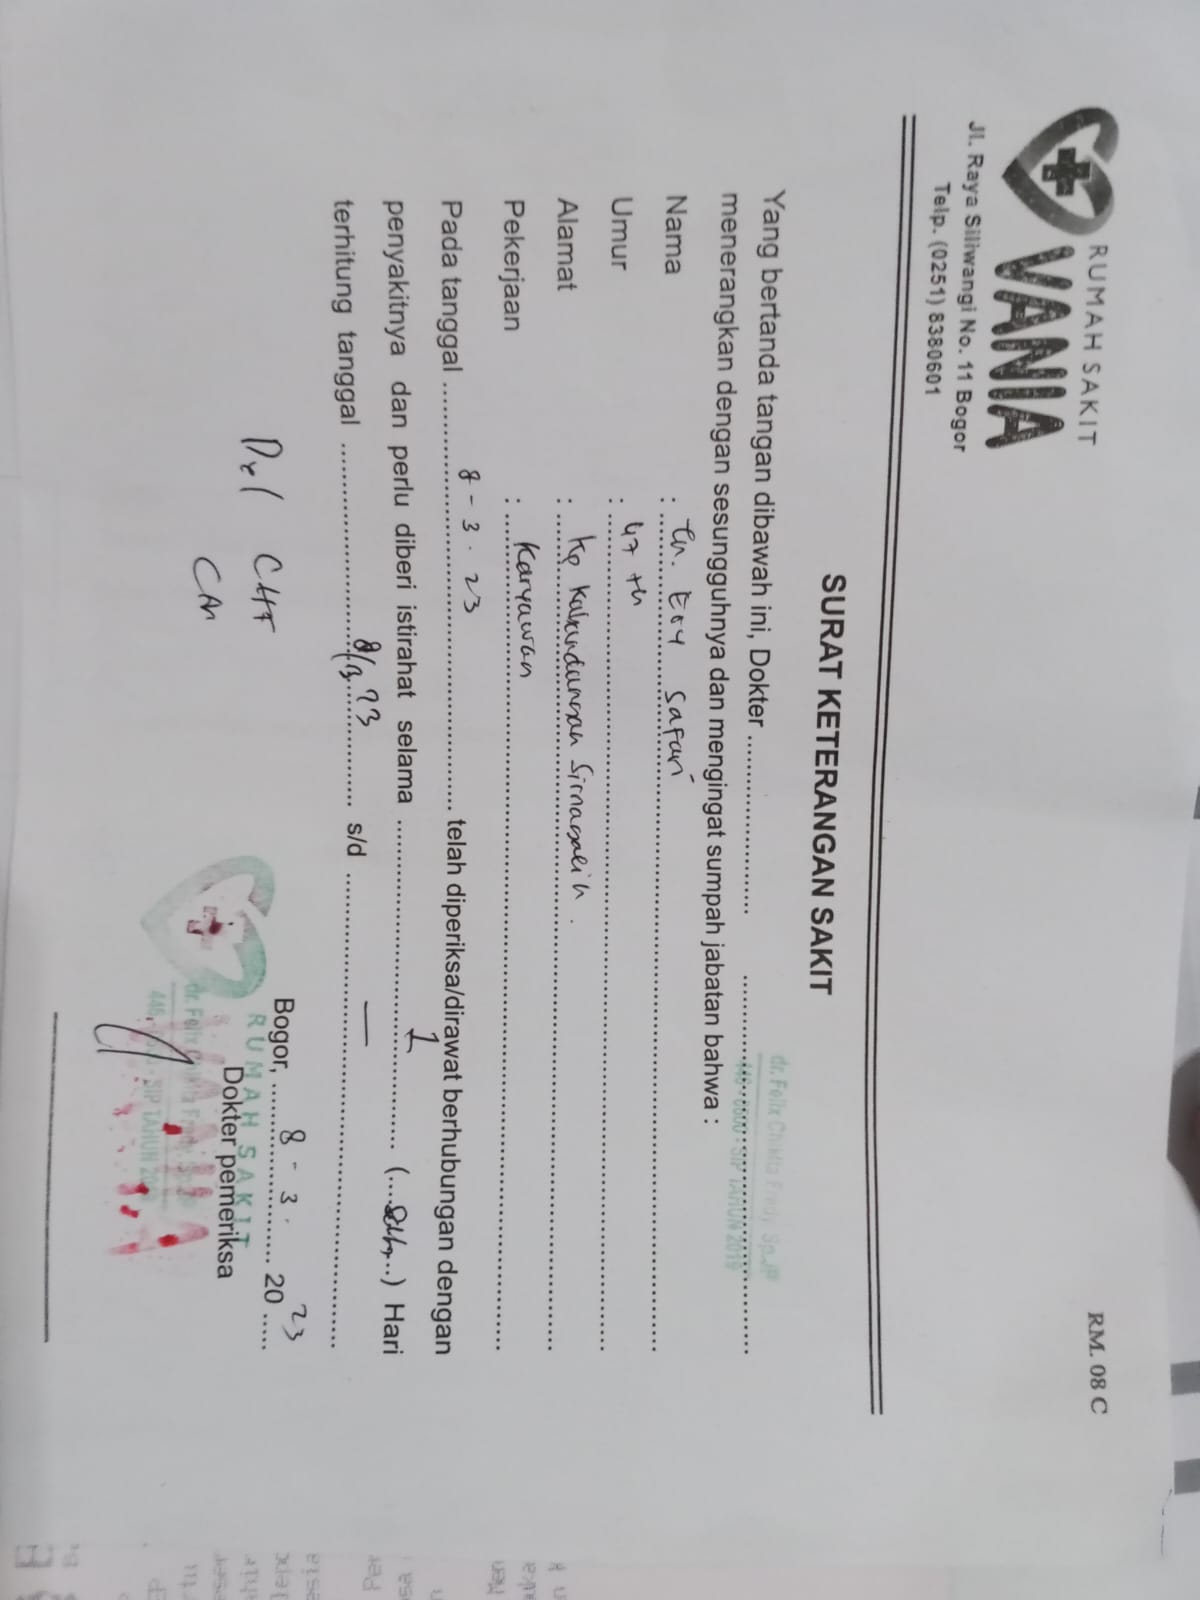 RUMAH SAKIT
VANIA
Jl. Raya Siliwangi No. 11 Bogor
Telp. (0251) 8380601
RM. 08 C
SURAT KETERANGAN SAKIT
Yang bertanda tangan dibawah ini, Dokter ..............................
dr. Felix Chikita Fredy SpJP
menerangkan dengan sesungguhnya dan mengingat sumpah jabatan bahwa :
Nama : Tn. Eoy Safari
Umur : 47 th
Alamat : Kp Simagalih.
Pekerjaan : Karyawan
Pada tanggal 8 - 3 . 23 telah diperiksa/dirawat berhubungan dengan
penyakitnya dan perlu diberi istirahat selama 1 (...) Hari
terhitung tanggal 8/3.23 s/d —
Bogor, 8 - 3 . 2023
Dokter pemeriksa
CHF
RUMAH SAKIT
SIP TAHUN